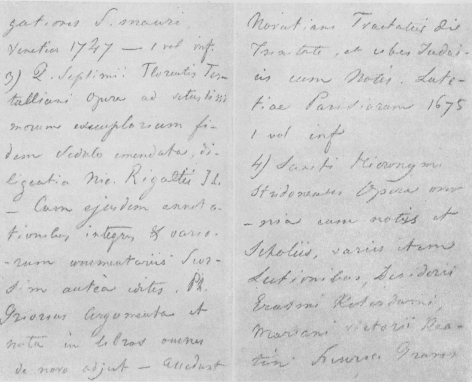 gationis S. mauri
Venetiis 1747 — 1 vol inf.
3) Q. Septimii Florentis Ter-
tulliani Opera ad vetustissi
morum exemplarium fi-
dem sedulo emendata, di-
ligentia Nic. Rigaltii
— Cum ejusdem annota
tionibus integris & vario-
-rum commentariis seor-
sim antea editis. Ph.
Priorius argumenta et
notas in libros omnes
de novo adjecit — Accedunt
Novatiani Tractatus de
Trinitate, et cibis Judai-
cis cum Notis. Lute-
tiae Parisiorum 1675
1 vol inf
4) Sancti Hieronym
Stridonensis Opera om
-nia cum notis et
Scholiis, variis etiam
Lectionibus, Desiderii
Erasmi Roterdami
Mariani Victorii Rea-
tini